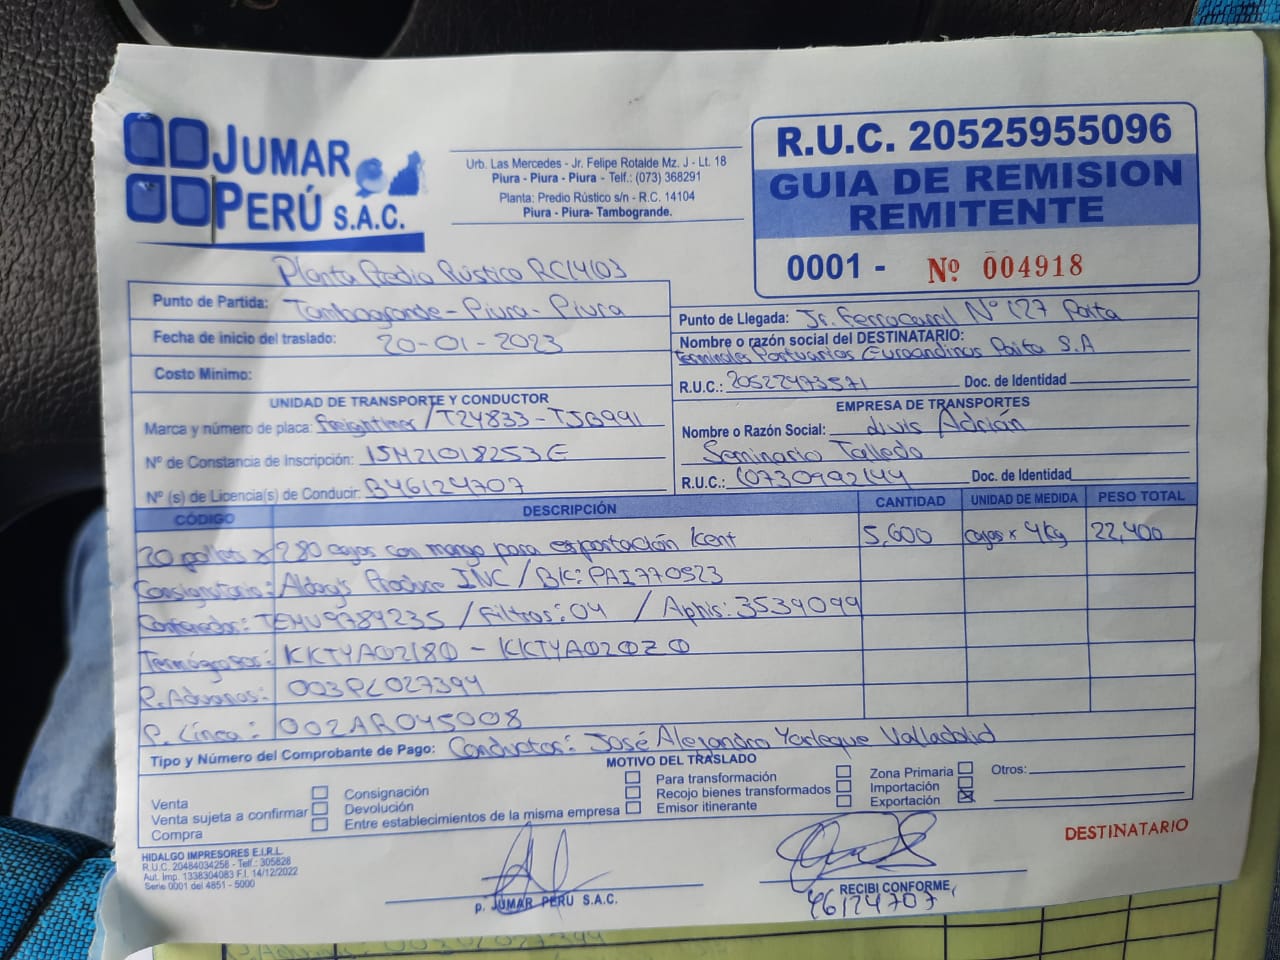 JUMAR PERÚ S.A.C.
Urb. Las Mercedes - Jr. Felipe Rotalde Mz. J - Lt. 18
Piura - Piura - Piura - Telf.: (073) 368291
Planta: Predio Rústico s/n - R.C. 14104
Piura - Piura- Tambogrande.
R.U.C. 20525955096
GUIA DE REMISION
REMITENTE
0001 - Nº 004918
Planta Predio Rústico RC14103
Punto de Partida: Tambogrande - Piura - Piura
Fecha de inicio del traslado: 20-01-2023
Costo Minimo:
Punto de Llegada: Jr. Ferrocarril Nº 127 Paita
Nombre o razón social del DESTINATARIO:
Terminales Portuarios Euroandinos Paita S.A
R.U.C.: 20522473571 Doc. de Identidad
UNIDAD DE TRANSPORTE Y CONDUCTOR
Marca y número de placa: Freightliner / T2Y833 - TJB991
Nº de Constancia de Inscripción: 15M21018253E
Nº (s) de Licencia(s) de Conducir: B46124707
EMPRESA DE TRANSPORTES
Nombre o Razón Social: Luis Adrián
Seminario Talledo
R.U.C.: 10730992144 Doc. de Identidad
CÓDIGO DESCRIPCIÓN CANTIDAD UNIDAD DE MEDIDA PESO TOTAL
20 pallets x 280 cajas con mango para exportación Kent 5,600 cajas x 4kg 22,400
Consignatario: Alday's Produce INC / BK: PAI770523
Contenedor: TEMU9789235 / Filtros: 04 / Aphis: 3539099
Termógrafos: KKTYA02180 - KKTYA020Z0
P. Aduanas: 003PL027394
P. Línea: 002AR045008
Tipo y Número del Comprobante de Pago: Conductor: José Alejandro Yarleque Valladolid
MOTIVO DEL TRASLADO
Venta
Venta sujeta a confirmar
Compra
Consignación
Devolución
Entre establecimientos de la misma empresa
Para transformación
Recojo bienes transformados
Emisor itinerante
Zona Primaria
Importación
Exportación
Otros:
HIDALGO IMPRESORES E.I.R.L.
R.U.C. 20484034258 - Telf.: 305828
Aut. Imp. 1338304083 F.I. 14/12/2022
Serie 0001 del 4851 - 5000
p. JUMAR PERÚ S.A.C.
RECIBI CONFORME
46124707
DESTINATARIO